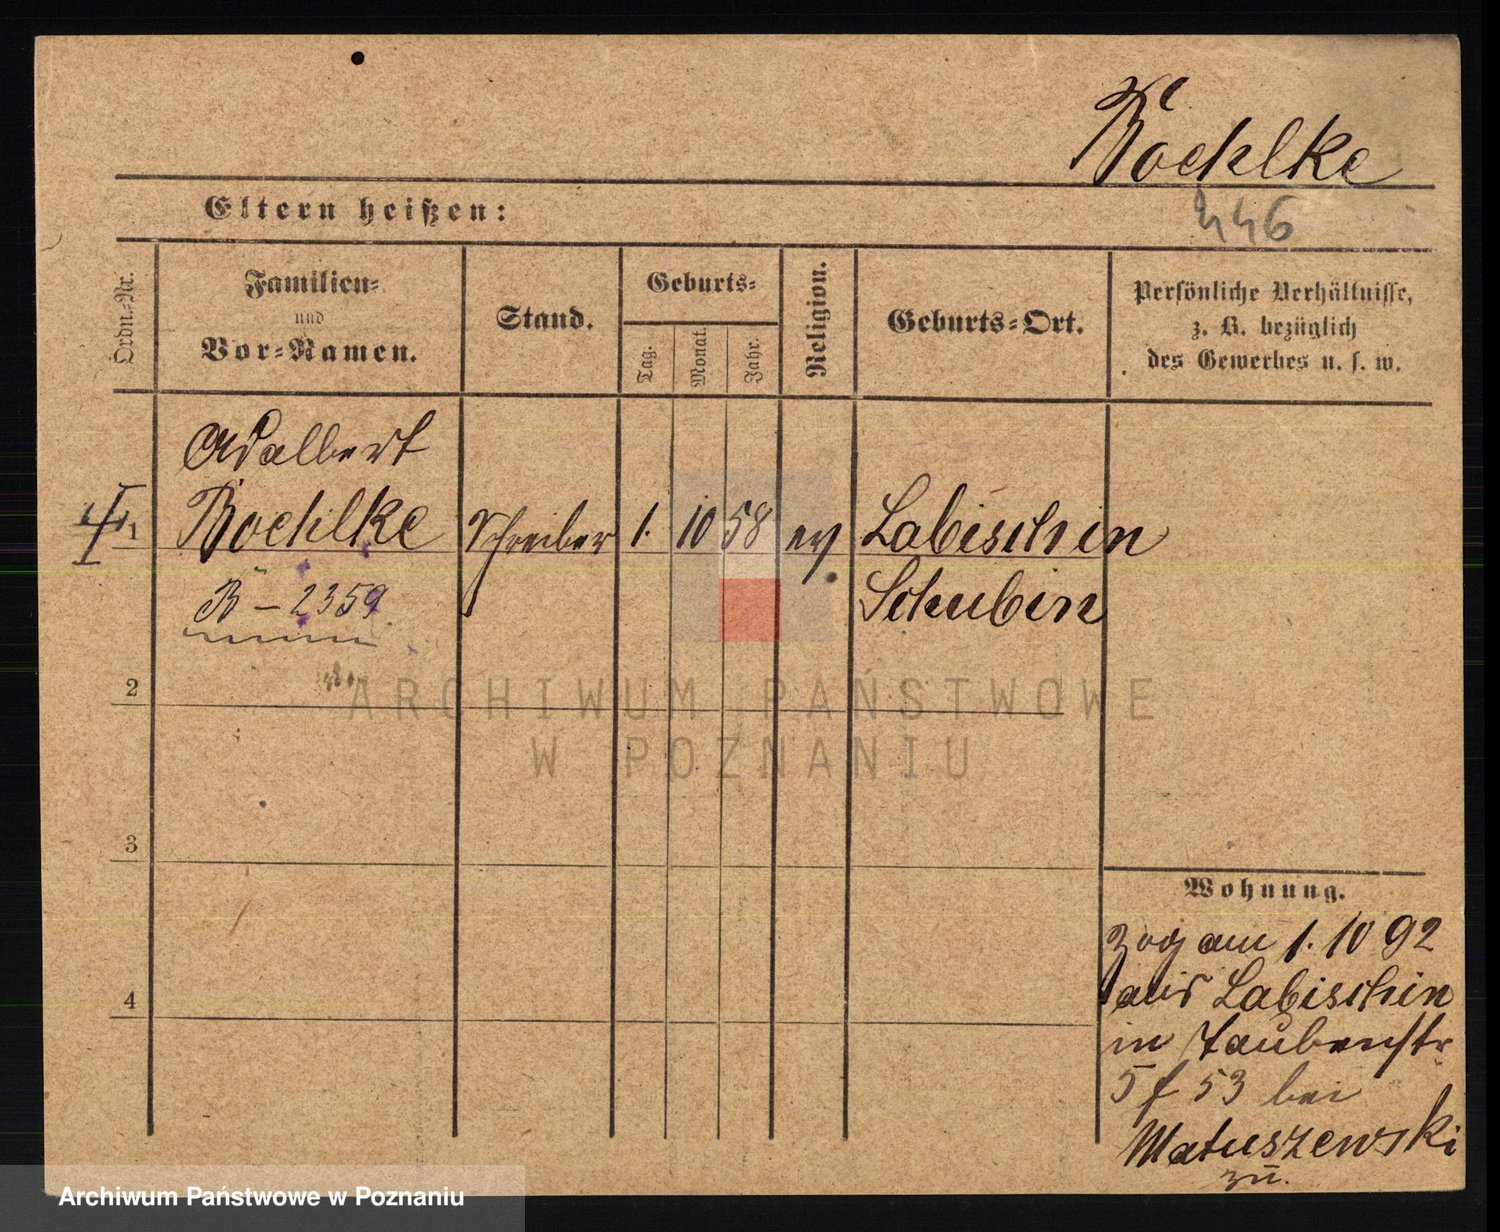 Boehlke
446
Eltern heißen:
Ordn.-Nr.
Familien-
und
Vor-Namen.
Stand.
Geburts-
Tag.
Monat.
Jahr.
Religion.
Geburts-Ort.
Persönliche Verhältnisse,
z. B. bezüglich
des Gewerbes u. s. w.
Adalbert
1 Boehlke Schreiber 1. 10 58 ev Labischin
B - 2359 Schubin
2
3
4
Wohnung.
zog am 1. 10 92
aus Labischin
in Taubenstr
5 f 53 bei
Matuszewski
zu.
ARCHIWUM PAŃSTWOWE
W POZNANIU
Archiwum Państwowe w Poznaniu